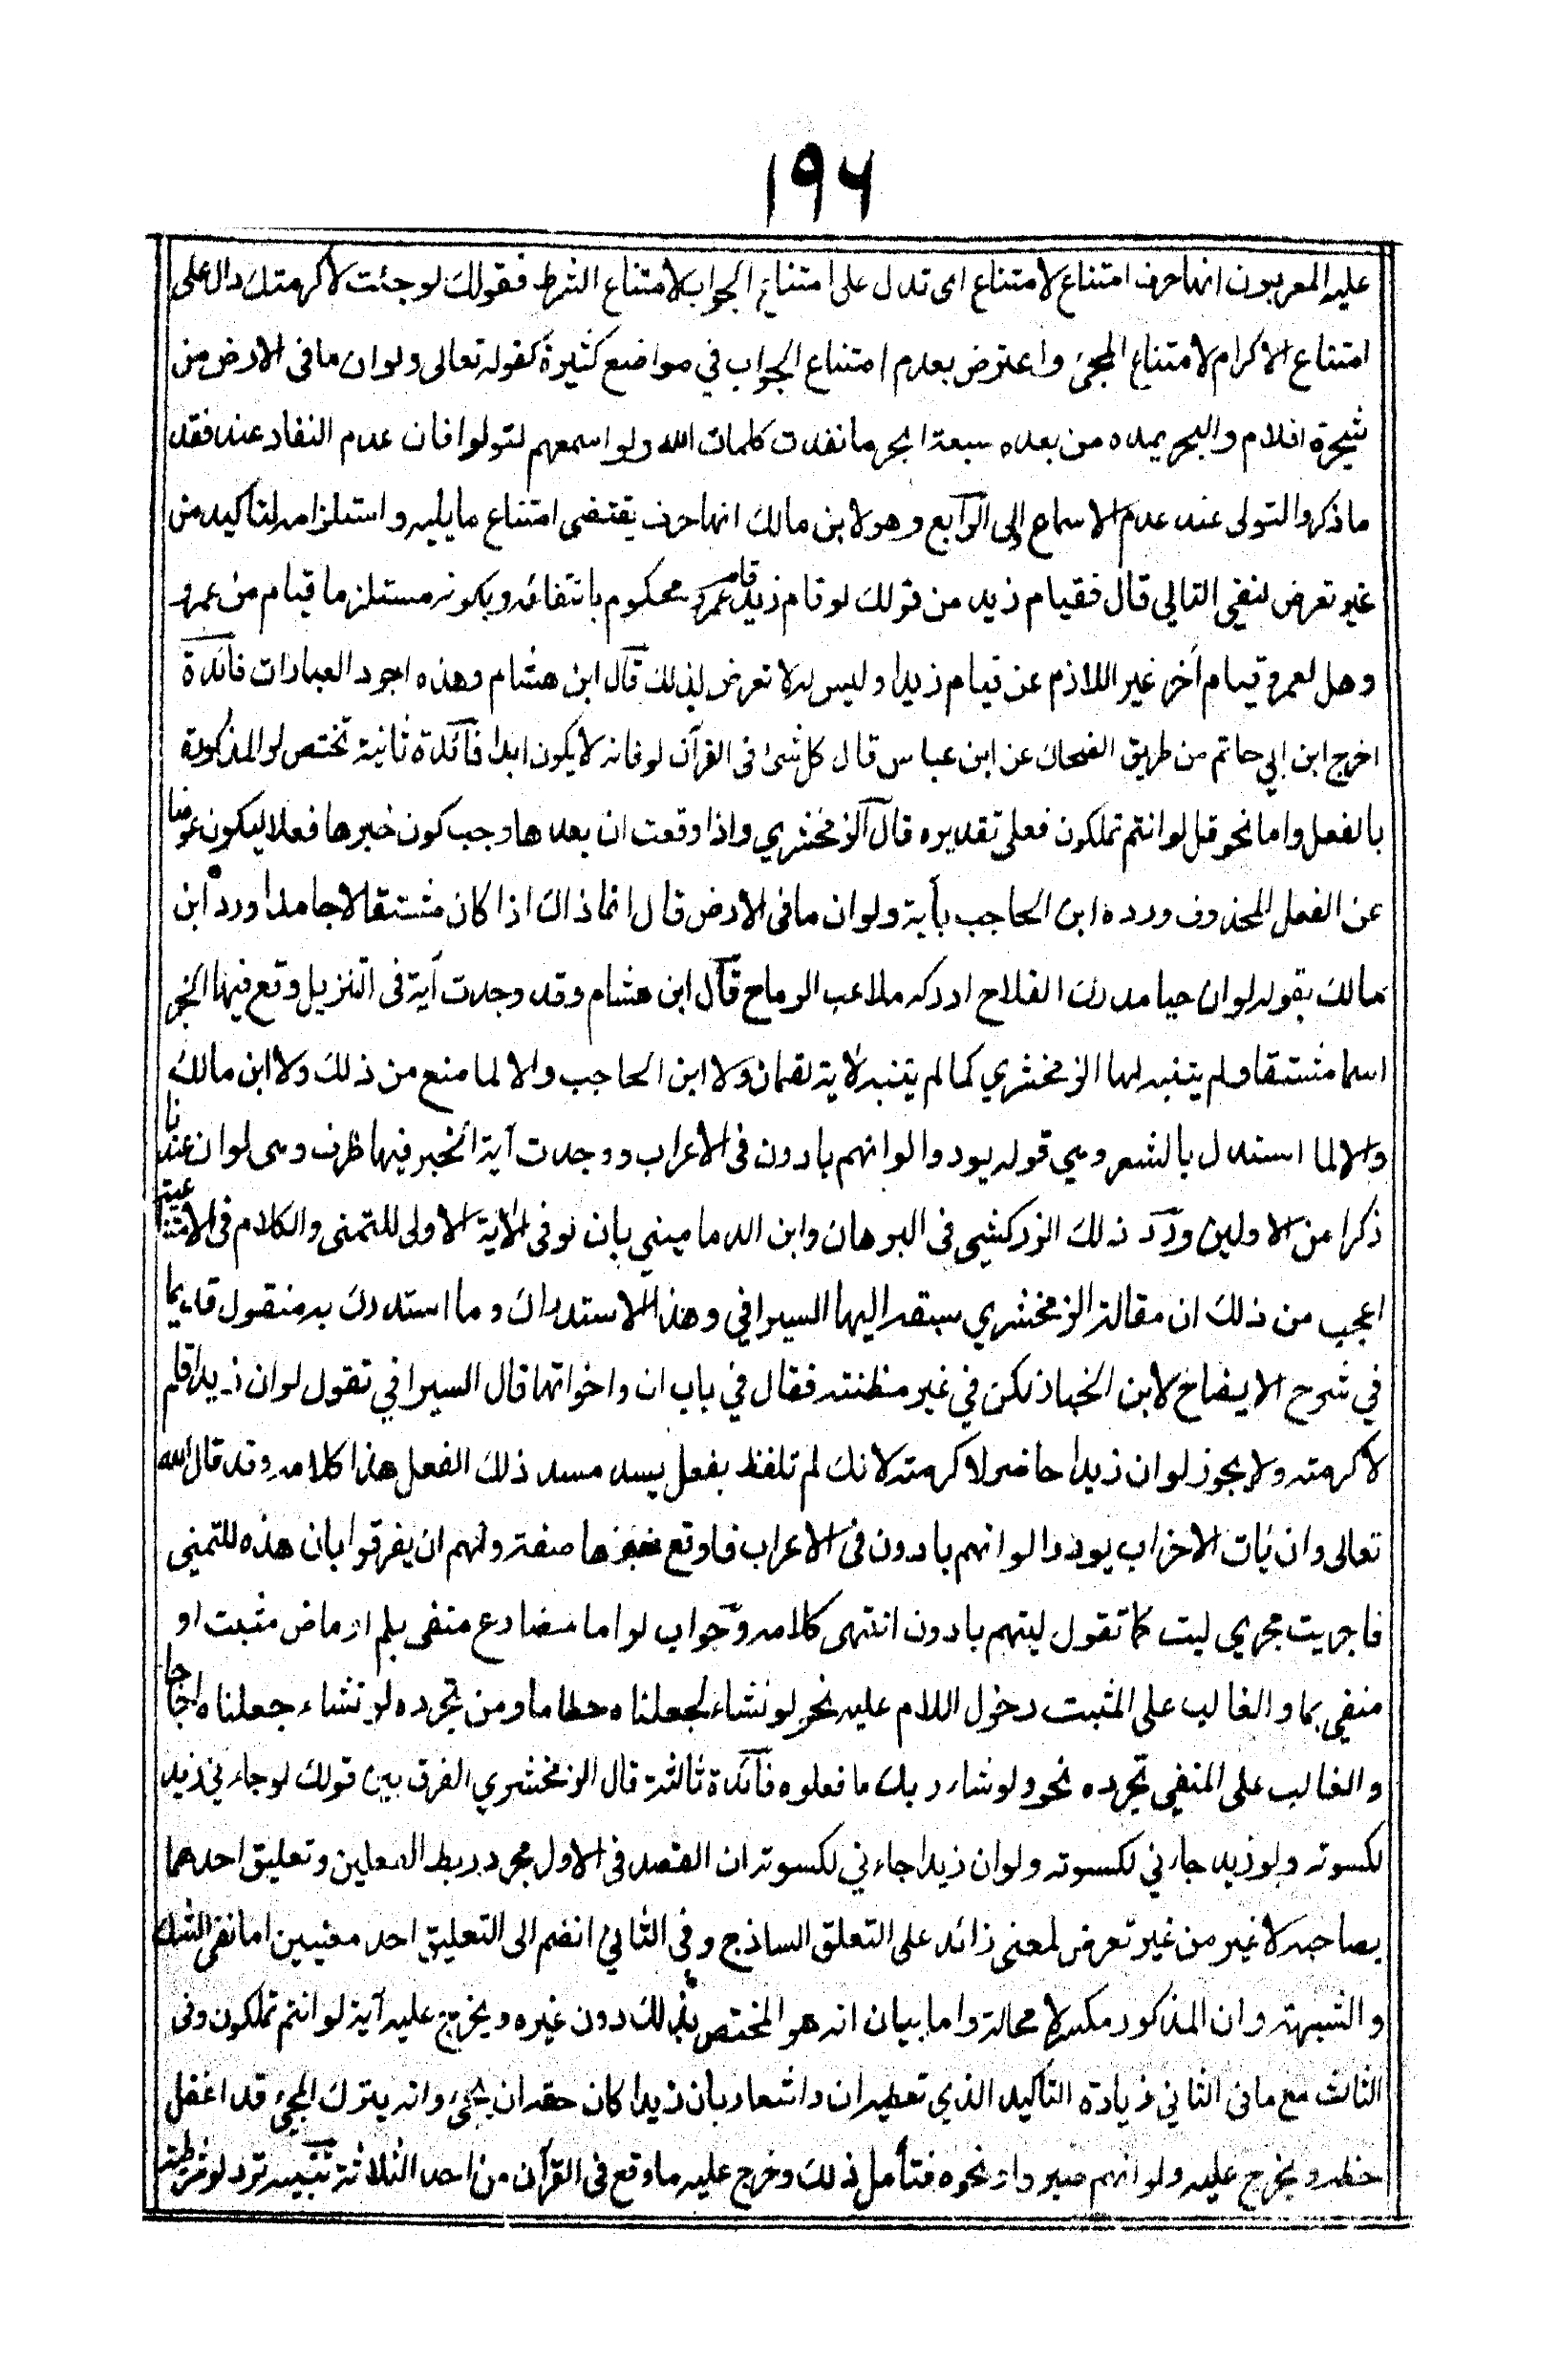 ۱۹۶
عليه المعربون انها حرف امتناع لامتناع اى تدل على امتناع الجواب لامتناع الشرط فقولك لو جئت لاكرمتك دال على
امتناع الاكرام لامتناع المجئ واعترض بعدم امتناع الجواب في مواضع كثيرة كقوله تعالى ولو ان ما فى الارض من
شجرة اقلام والبحر يمده من بعده سبعة ابحر ما نفدت كلمات الله ولو اسمعهم لتولوا فان عدم النفاد عند فقد
ما ذكر والتولى عند عدم الاسماع اولى الرابع وهو لابن مالك انها حرف يقتضى امتناع ما يليه واستلزامه لتاليه من
غير تعرض لنفى التالى قال فقيام زيد من قولك لو قام زيد قام عمرو محكوم بانتفائه وبكونه مستلزما قيام من عمرو
وهل لعمرو قيام آخر غير اللازم عن قيام زيد او ليس له لا تعرض لذلك قال ابن هشام وهذه اجود العبارات فائدة
اخرج ابن ابي حاتم من طريق الضحاك عن ابن عباس قال كل شئ فى القرآن لو فانه لا يكون ابدا فآئدة ثانية تختص لو المذكورة
بالفعل واما نحو قل لو انتم تملكون فعلى تقديره قال الزمخشري واذا وقعت ان بعدها وجب كون خبرها فعلا ليكون عوضا
عن الفعل المحذوف ورده ابن الحاجب بآية ولو ان ما فى الارض قال انما ذاك اذا كان مشتقا لا جامدا ورده ابن
مالك بقوله لو ان حيا مدرك الفلاح ادركه ملاعب الرماح قال ابن هشام وقد وجدت آية فى التنزيل وقع فيها الخبر
اسما مشتقا ولم يتنبه لها الزمخشري كما لم يتنبه لآية لقمان ولا ابن الحاجب والا لما منع من ذلك ولا ابن مالك
والا لما استدل بالشعر وهى قوله يودوا لو انهم بادون فى الاعراب ووجدت آية الخبر فيها ظرف وهى لو ان عندنا
ذكرا من الاولين ورد ذلك الزركشى فى البرهان وابن الدمامينى بان لو فى الآية الاولى للتمنى والكلام فى الامتناعية
اعجب من ذلك ان مقالة الزمخشري سبقه اليها السيرافي وهذا الاستدراك وما استدرك به منقول قديما
في شرح الايضاح لابن الخباز لكن في غير مظنته فقال في باب ان واخواتها قال السيرافي تقول لو ان زيدا قام
لاكرمته ولا يجوز لو ان زيدا حاضر لاكرمته لانك لم تلفظ بفعل يسد مسد ذلك الفعل هذا كلامه وقد قال الله
تعالى وان يات الاحزاب يودوا لو انهم بادون فى الاعراب فاوقع خبرها صفة ولهم ان يفرقوا بان هذه للتمنى
فاجريت مجرى ليت كما تقول ليتهم بادون انتهى كلامه وجواب لو اما مضارع منفى بلم او ماض مثبت او
منفى بما والغالب على المثبت دخول اللام عليه نحو لو نشاء لجعلناه حطاما ومن تجرده لو نشاء جعلناه اجاجا
والغالب على المنفى تجرده نحو ولو شاء ربك ما فعلوه فآئدة ثالثة قال الزمخشري الفرق بين قولك لو جاءني زيد
لكسوته ولو زيد جاءني لكسوته ولو ان زيدا جاءني لكسوته ان القصد فى الاول مجرد ربط الفعلين وتعليق احدهما
بصاحبه لا غير من غير تعرض لمعنى زائد على التعلق الساذج وفى الثانى انضم الى التعليق احد معنيين اما نفى الشك
والشبهة وان المذكور مكسو لا محالة واما بيان انه هو المختص بذلك دون غيره ويخرج عليه آية لو انتم تملكون وفى
الثالث مع ما فى الثاني زيادة التاكيد الذي تعطيه ان واشعار بان زيدا كان حقه ان يجئ وانه بترك المجئ قد اغفل
حظه ويخرج عليه ولو انهم صبروا ونحوه فتأمل ذلك وخرج عليه ما وقع فى القرآن من احد الثلاثة تنبيه ترد لو شرطية